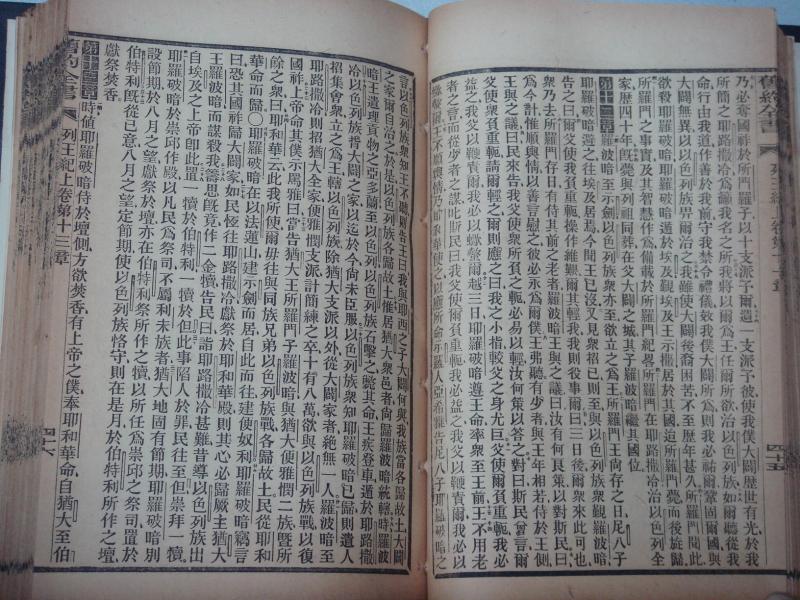 舊約全書
列王紀上卷第十二章
四十五
乃必奪國祚於所門羅子以十支派予爾遺一支派予彼使我僕大闢歷世有光於我
所簡之耶路撒冷為籲我名之所我將以爾為王任爾所欲治以色列族如爾聽從我
命行由我道作善於我前守我禁令禮儀效我僕大闢所為則我必祐爾鞏固爾國與
大闢無異以以色列族畀爾治之我雖使大闢後裔困苦不至歷年甚久所羅門聞此
欲殺耶羅破暗耶羅破暗遁於埃及覲埃及王示撒居於其國迨所羅門薨而後旋歸
所羅門之事實及其智慧作為備載於所羅門紀畧所羅門在耶路撒冷治以色列全
家歷四十年旣薨與列祖同葬在父大闢之城其子羅波暗繼其國位
第十二章 羅波暗至示劍以色列族亦至欲立之為王所羅門王尚存之日尼八子
耶羅破暗避之往埃及居焉今聞王已沒又見衆招已則至與以色列族衆覲羅波暗
告之曰爾父使我負重軛操作維艱爾其輕我則役事爾曰三日後爾衆來此可也
衆乃去所羅門存日有侍其前之老者羅波暗王與之議曰汝有何良策以對斯民曰
為今計惟順輿情以善言慰之彼必永為爾僕王弗聽有少者與王年相若侍於王側
王與之議曰民來告我云我父使衆所負之軛必易以輕汝何策以答之對曰斯民曾言爾
父使衆負重軛請爾輕之爾則應之曰我之小指較父之身尤巨父使爾負重軛我必
益之我父以鞭責爾我必以蠍螫爾越三日耶羅破暗遵王命率衆至王前王不用老
者之言而從少者之謀叱斯民曰我父使爾負重軛我必益之我父以鞭
王不順輿情乃耶和華使之以應所命示羅人亞希雅告尼八子耶羅破暗之
言以色列族衆知王不聽則告王曰我與耶西之子大闢何與我族當各歸故土大闢
之家爾自治之於是以色列族各歸故土惟居猶大衆邑者尚歸羅波暗統轄時羅波
暗王遣理貢物之亞多蘭至以色列族以色列族石擊之斃其命王疾登車遁於耶路撒
冷以色列族背大闢之家以迄於今尚未臣服以色列族衆知耶羅破暗已歸則遣人
招集會衆立之為王轄以色列族除猶大支派以外從大闢家者絶無一人羅波暗至
耶路撒冷則招猶大全家便雅憫支派計簡練之卒十有八萬欲與以色列族戰以復
國祚上帝命其僕示馬雅曰當告猶大王所羅門子羅波暗與猶大便雅憫二族暨所
餘之衆曰耶和華云此我所使爾曰勿往與同族兄弟以色列族戰各歸故土民從耶和
華命而歸〇耶羅破暗在以法蓮山建示劍而居自此而往建便奴利耶羅破暗竊言
曰恐其國祚歸大闢家如民恆往耶路撒冷獻祭於耶和華殿則其心必歸厥主猶大
王羅波暗而謀殺我籌思旣竟作二金犢告民曰詣耶路撒冷甚難昔導以色列族出
自埃及之上帝卽此置一犢於伯特利一犢於但此事陷人於罪民往至但崇拜一犢
耶羅破暗於崇邱作殿以凡民為祭司不屬利未族者猶大地固有節期耶羅破暗別
設節期於八月之望獻祭於壇亦在伯特利祭所作之犢以所任為崇邱之祭司置於
伯特利旣從已意八月之望定節期使以色列族恪守則在是月於伯特利所作之壇
獻祭焚香
第十三章 時値耶羅破暗侍於壇側方欲焚香有上帝之僕奉耶和華命自猶大至伯
舊約全書
列王紀上卷第十三章
四十六